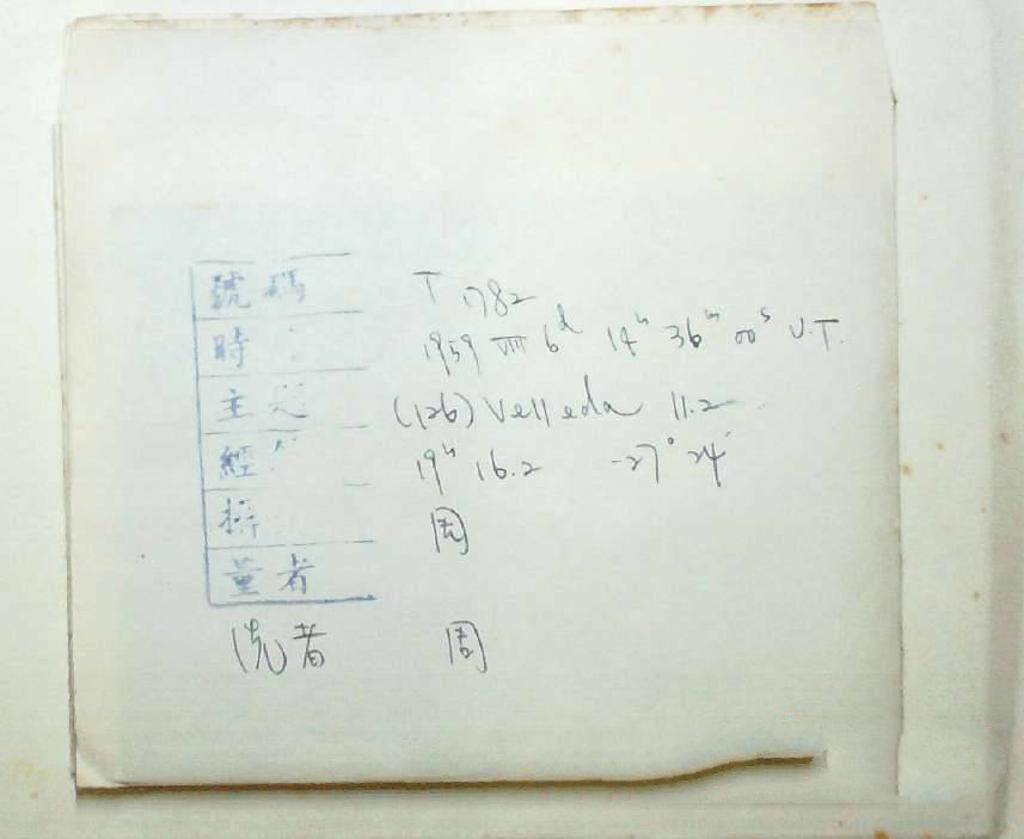 號碼 T 1782
時 1959 VIII 6d 14h 36m 00s U.T.
主 (126) Velleda 11.2
經 19h 16.2 -27° 24'
周
量者
洗者 周